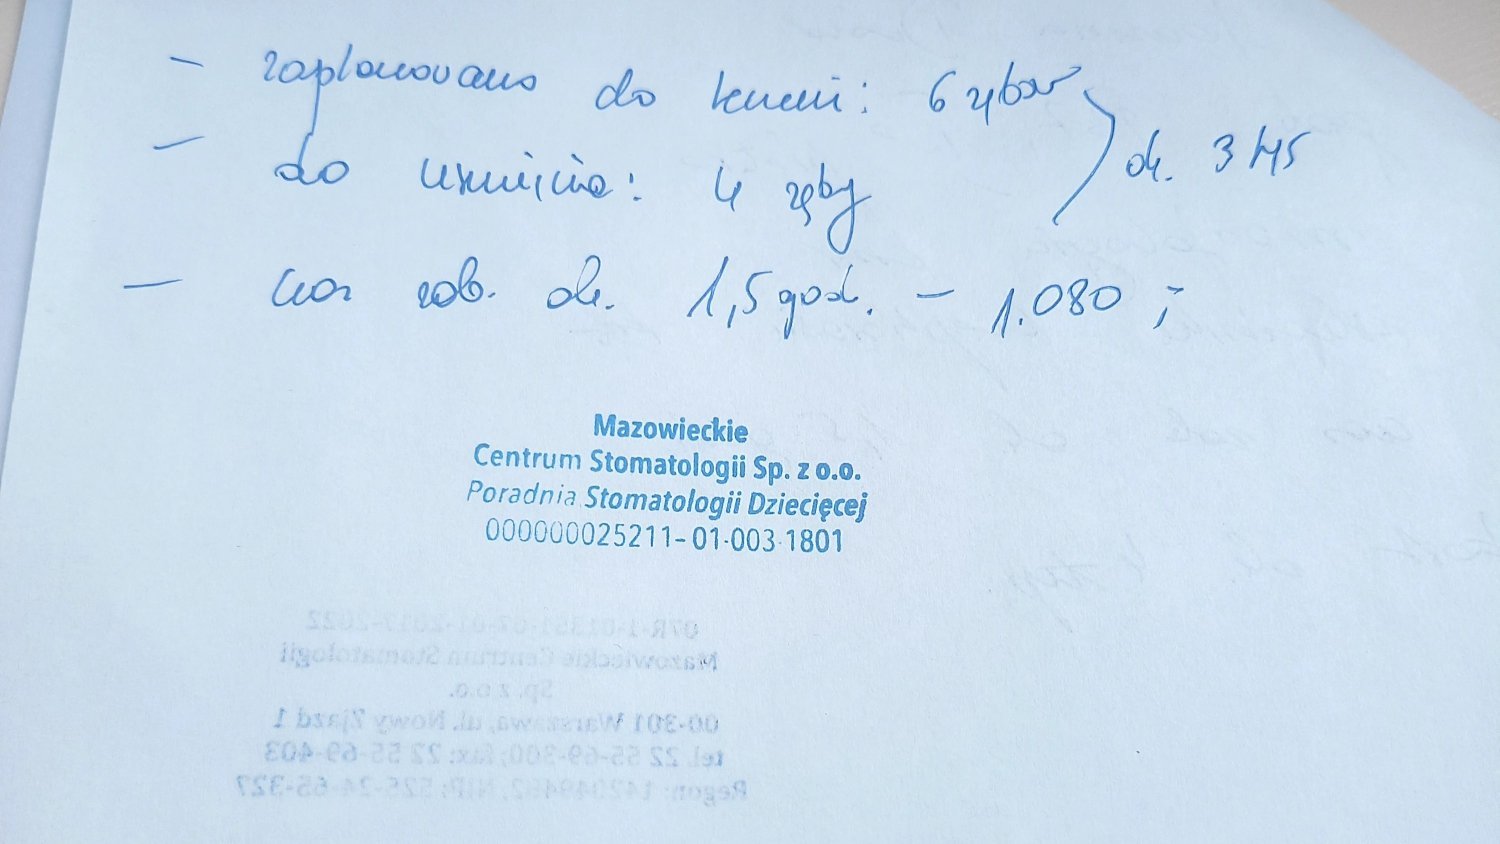 - zaplanowano do leczenia: 6 zębów
- do usunięcia: 4 zęby
ok. 3 tys
- czas zab. ok. 1,5 godz. - 1.080 ;-
Mazowieckie
Centrum Stomatologii Sp. z o.o.
Poradnia Stomatologii Dziecięcej
000000025211-01-003-1801
Mazowieckie Centrum Stomatologii
Sp. z o.o.
00-301 Warszawa, ul. Nowy Zjazd 1
tel. 22 55-69-300; fax: 22 55-69-403